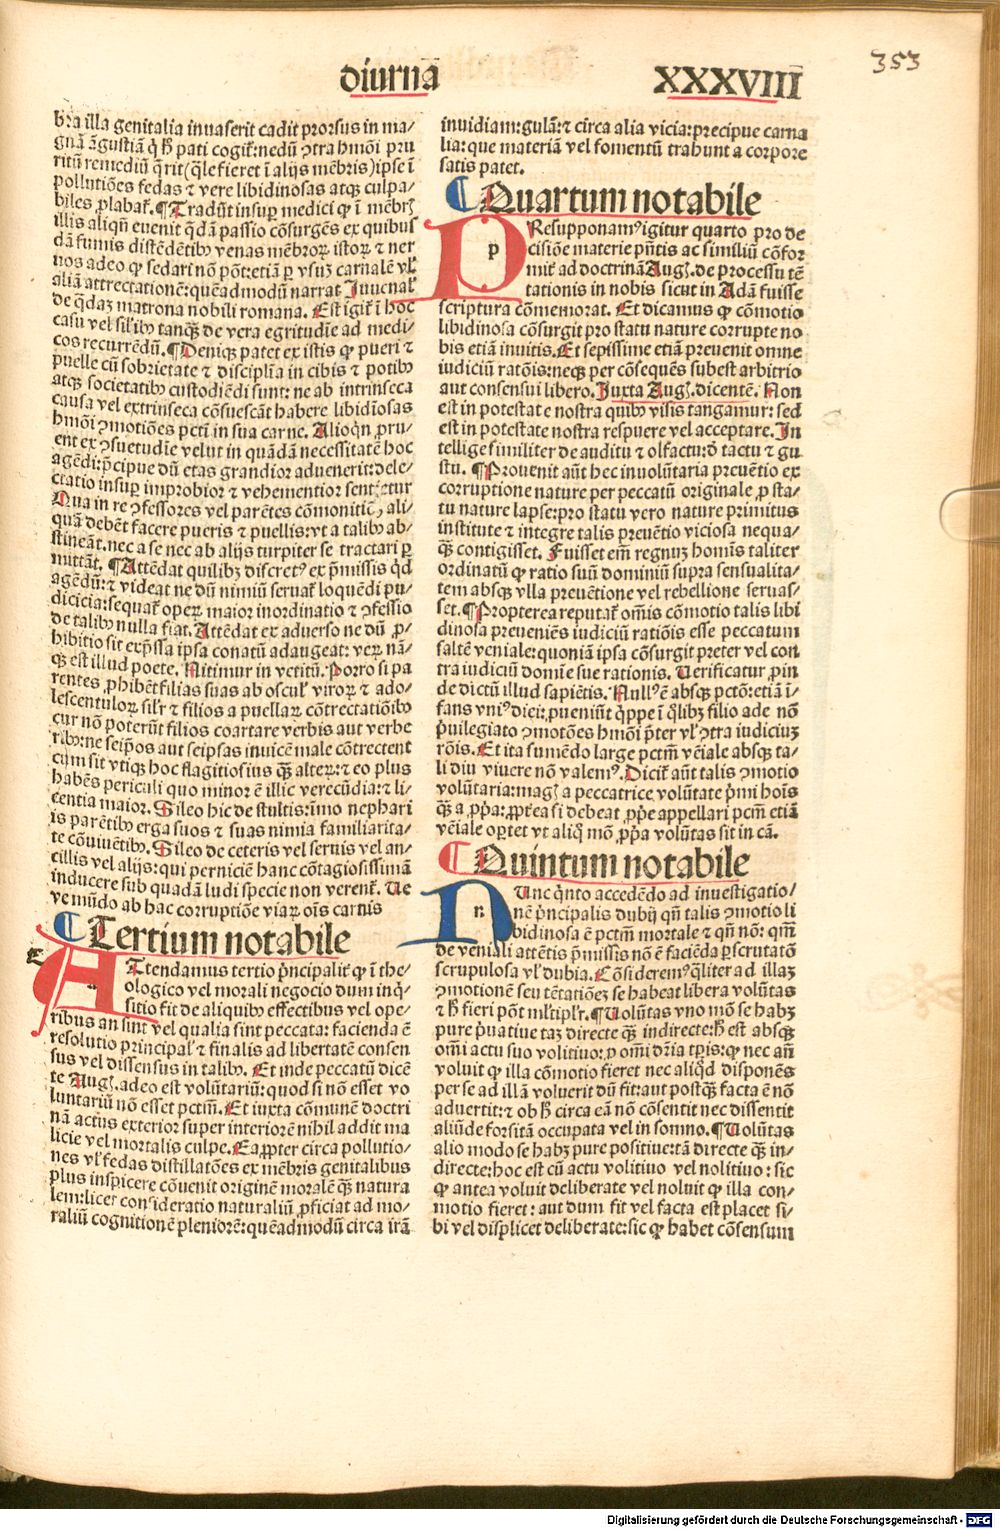 353
diurnā XXXVIII
bra illa genitalia inuaserit cadit prorsus in ma/
gnā āgustiā ꝙ hͦ pati cogit᷑: nedū ꝯtra hmōi pru
ritū remediū q̄rit (q̄le fieret ī alijs mēbris) ipse ī
pollutiōes fedas ⁊ vere libidinosas atqꝫ culpa/
biles ꝓlabat᷑. ¶ Tradūt insuꝑ medici ꝙ ī mēbrꝭ
illis aliqn̄ euenit q̄dā passio cōsurgēs ex quibus
dā fumis distēdētibꝰ venas mēbroꝝ istoꝝ ⁊ ner
uos adeo ꝙ sedari nō pōt: etiā ꝑ vsuꝫ carnalē vl᷑
aliā attrectationē: quēadmodū narrat Juuenal᷑
de q̄daꝫ matrona nobili romana. Est igit᷑ ī hoc
casu vel sil᷑ibꝰ tanq̄ꝫ de vera egritudīe ad medi/
cos recurrēdū. ¶ Deniqꝫ patet ex istis ꝙ pueri ⁊
puelle cū sobrietate ⁊ disciplīa in cibis ⁊ potibꝰ
atqꝫ societatibꝰ custodiēdi sunt: ne ab intrinseca
causa vel extrinseca cōsuescāt habere libidīosas
hmōi ꝯmotiōes pct̄i in sua carne. Alioqn̄ ꝓru/
ent ex ꝯsuetudīe velut in quādā necessitatē hoc
agēdi: p̄cipue dū etas grandior aduenerit: dele/
ctatio insuꝑ improbior ⁊ vehementior sentietur
Qua in re ꝯfessores vel parētes cōmonitiōꝫ ali/
quā debēt facere pueris ⁊ puellis: vt a talibꝰ ab/
stineāt. nec a se nec ab alijs turpiter se tractari ꝑ
mittāt. ¶ Attēdat quilibꝫ discretꝰ ex p̄missis qͥd
agēdū: ⁊ videat ne dū nimiū seruat᷑ loquēdi pu/
dicicia: sequat᷑ operꝝ maior inordinatio ⁊ ꝯfessio
de talibꝰ nulla fiat. Attēdat ex aduerso ne dū ꝓ/
hibitio sit exp̄ssa ipsa conatū adaugeat: veꝝ nā/
qꝫ est illud poete. Nitimur in vetitū. Porro si pa
rentes ꝓhibēt filias suas ab oscul᷑ viroꝝ ⁊ ado/
lescentuloꝝ sil᷑r ⁊ filios a puellaꝝ cōtrectatiōibꝰ
cur nō poterūt filios coartare verbis aut verbe
ribꝰ: ne seip̄os aut seipsas inuicē male cōtrectent
cum sit vtiqꝫ hoc flagitiosius q̄ꝫ alteꝝ: ⁊ eo plus
habēs periculi quo minor ē illic verecūdia: ⁊ li/
centia maior. Sileo hic de stultis: īmo nephari
is parētibꝰ erga suos ⁊ suas nimia familiarita/
te cōuiuētibꝰ. Sileo de ceteris vel seruis vel an/
cillis vel alijs: qui perniciē hanc cōtagiosissimā
inducere sub quadā ludi specie non verent᷑. Ue
ve mūdo ab hac corruptiōe viaꝝ oīs carnis
¶ Tertium notabile
Attendamus tertio p̄ncipalit᷑ ꝙ ī the/
ologico vel morali negocio dum inqͥ/
sitio fit de aliquibꝰ effectibus vel ope/
ribus an sint vel qualia sint peccata: facienda ē
resolutio principal᷑ ⁊ finalis ad libertatē consen
sus vel dissensus in talibꝰ. Et inde peccatū dicē
te Augꝭ. adeo est volūtariū: quod si nō esset vo
luntariū nō esset pctm̄. Et iuxta cōmunē doctri
nā actus exterior super interiorē nihil addit ma
licie vel mortalis culpe. Eaꝓpter circa pollutio/
nes vl᷑ fedas distillatōes ex mēbris genitalibus
plus inspicere cōuenit originē moralē q̄ꝫ natura
lem: licet consideratio naturaliū ꝓficiat ad mo/
raliū cognitionē pleniorē: quēadmodū circa irā
inuidiam: gulā: ⁊ circa alia vicia: precipue carna
lia: que materiā vel fomentū trahunt a corpore
satis patet.
¶ Quartum notabile
p
PResupponamꝰ igitur quarto pro de
cisiōe materie pn̄tis ac similiū cōfor
mit᷑ ad doctrinā Augꝭ. de processu tē
tationis in nobis sicut in Adā fuisse
scriptura cōmemorat. Et dicamus ꝙ cōmotio
libidinosa cōsurgit pro statu nature corrupte no
bis etiā inuitis. Et sepissime etiā preuenit omne
iudiciū ratōis: neqꝫ per cōsequēs subest arbitrio
aut consensui libero. Juxta Augꝭ. dicentē. Non
est in potestate nostra quibꝰ visis tangamur: sed
est in potestate nostra respuere vel acceptare. In
tellige similiter de auditu ⁊ olfactu: d̄ tactu ⁊ gu
stu. ¶ Prouenit aūt hec inuolūtaria preuētio ex
corruptione nature per peccatū originale ꝓ sta/
tu nature lapse: pro statu vero nature primitus
institute ⁊ integre talis preuētio viciosa nequa/
q̄ꝫ contigisset. Fuisset em̄ regnuꝫ homīs taliter
ordinatū ꝙ ratio suū dominiū supra sensualita/
tem absqꝫ vlla preuētione vel rebellione seruas/
set. ¶ Propterea reputat᷑ om̄is cōmotio talis libi
dinosa preueniēs iudiciū ratiōis esse peccatum
saltē veniale: quoniā ipsa cōsurgit preter vel con
tra iudiciū domīe sue rationis. Uerificatur ꝓin
de dictū illud sapiētis. Nullꝰ ē absqꝫ pctō: etiā ī/
fans vniꝰ diei: ꝓueniūt q̄ppe ī qͦlibꝫ filio ade nō
p̄uilegiato ꝯmotōes hmōi p̄ter vl᷑ ꝯtra iudiciuꝫ
rōis. Et ita sumēdo large pctm̄ vēiale absqꝫ ta/
li diu viuere nō valemꝰ. Dicit᷑ aūt talis ꝯmotio
volūtaria: magꝭ a peccatrice volūtate p̄mi hoīs
q̄ꝫ a ꝓp̄a: ꝓpt̄ea si debeat ꝓp̄e appellari pctm̄ etiā
vēiale oꝑtet vt aliqͦ mō ꝓp̄a volūtas sit in cā.
¶ Quintum notabile
n
NUnc qͥnto accedēdo ad inuestigatio/
nē p̄ncipalis dubij qn̄ talis ꝯmotio li
bidinosa ē pctm̄ mortale ⁊ qn̄ nō: qm̄
de veniali attētis p̄missis nō ē faciēda ꝑscrutatō
scrupulosa vl᷑ dubia. Cōsideremꝰ q̄liter ad illaꝫ
ꝯmotionē seu tētatiōeꝫ se habeat libera volūtas
⁊ hͦ fieri pōt ml᷑tipl᷑r. ¶ Uolūtas vno mō se habꝫ
pure p̄uatiue taꝫ directe q̄ꝫ indirecte: hͦ est absqꝫ
om̄i actu suo volitiuo: ꝓ om̄i dr̄ia tꝑis: ꝙ nec añ
voluit ꝙ illa cōmotio fieret nec aliqͥd disponēs
per se ad illā voluerit dū fit: aut postq̄ꝫ facta ē nō
aduertit: ⁊ ob hͦ circa eā nō cōsentit nec dissentit
aliūde forsitā occupata vel in somno. ¶ Uolūtas
alio modo se habꝫ pure positiue: tā directe q̄ꝫ in/
directe: hoc est cū actu volitiuo vel nolitiuo: sic
ꝙ antea voluit deliberate vel noluit ꝙ illa con/
motio fieret: aut dum fit vel facta est placet si/
bi vel displicet deliberate: sic ꝙ habet cōsensum
Digitalisierung gefördert durch die Deutsche Forschungsgemeinschaft - DFG